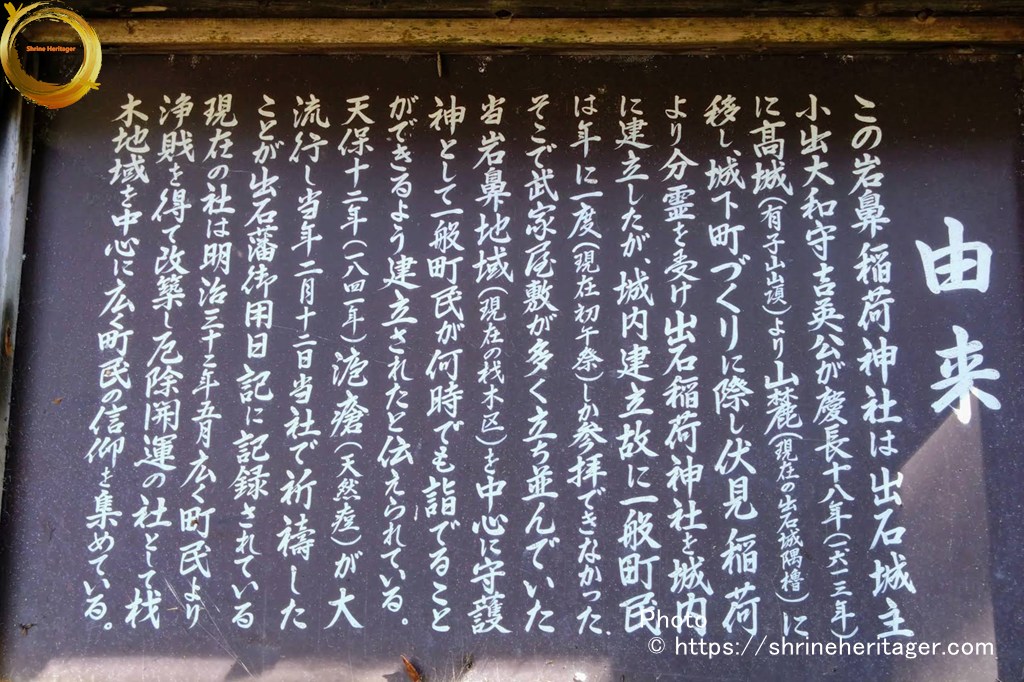 Shrine Heritager
由来
この岩鼻稲荷神社は出石城主
小出大和守吉英公が慶長十八年(一六一三年)
に高城(有子山山頂)より山麓(現在の出石城隅櫓)に
移し、城下町づくりに際し伏見稲荷
より分霊を受け出石稲荷神社を城内
に建立したが、城内建立故に一般町民
は年に一度(現在初午祭)しか参拝できなかった
そこで武家屋敷が多く立ち並んでいた
当岩鼻地域(現在の桟木区)を中心に守護
神として一般町民が何時でも詣でること
ができるよう建立されたと伝えられている。
天保十二年(一八四一年)疱瘡(天然痘)が大
流行し当年二月十二日当社で祈禱した
ことが出石藩御用日記に記録されている
現在の社は明治三十二年五月広く町民より
浄財を得て改築し厄除開運の社として桟
木地域を中心に広く町民の信仰を集めている。
Photo
© https://shrineheritager.com